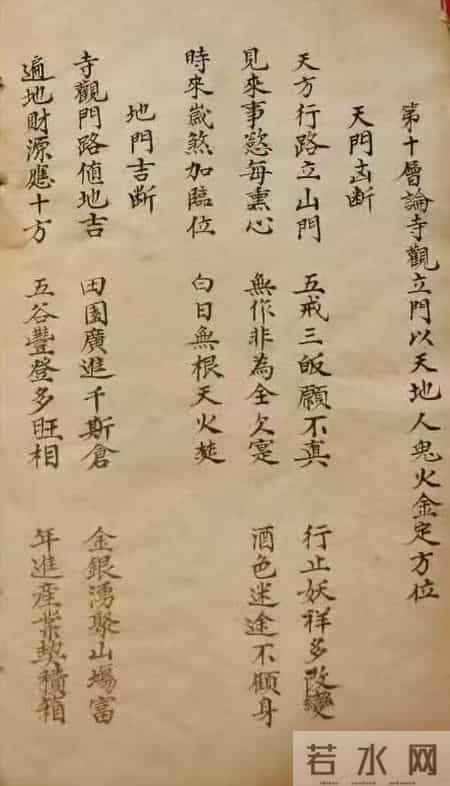 第十層論寺觀立門以天地人鬼火金定方位
天門凶断
天方行路立山門 五戒三皈願不真 行止妖祥多改變
見來事慾每熏心 無作非為全欠寔 酒色迷途不顧身
時來歲煞加臨位 白日無根天火焚
地門吉断
寺觀門路值地吉 田園廣進千斯倉 金銀湧聚山塲富
遍地財源應十方 五谷豐登多旺相 年進産業契積箱
若水网